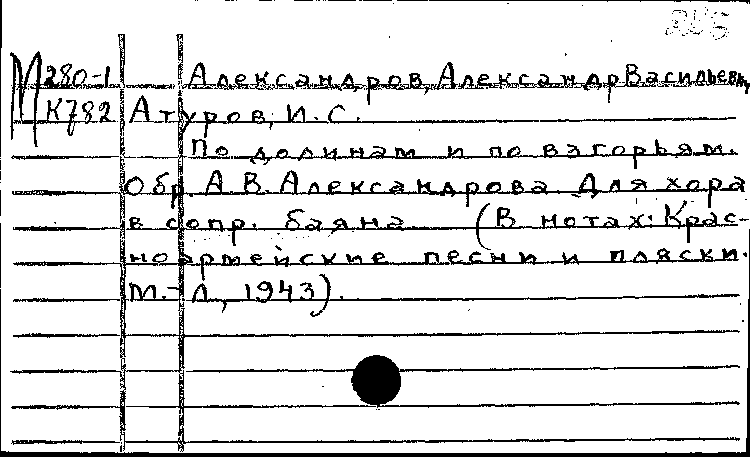 М 280-1 Александров, Александр Васильевич
К782 Атуров, И. С.
По долинам и по взгорьям.
Обр. А. В. Александрова. Для хора
в сопр. баяна (В нотах: Крас-
ноармейские песни и пляски.
М.-Л., 1943).